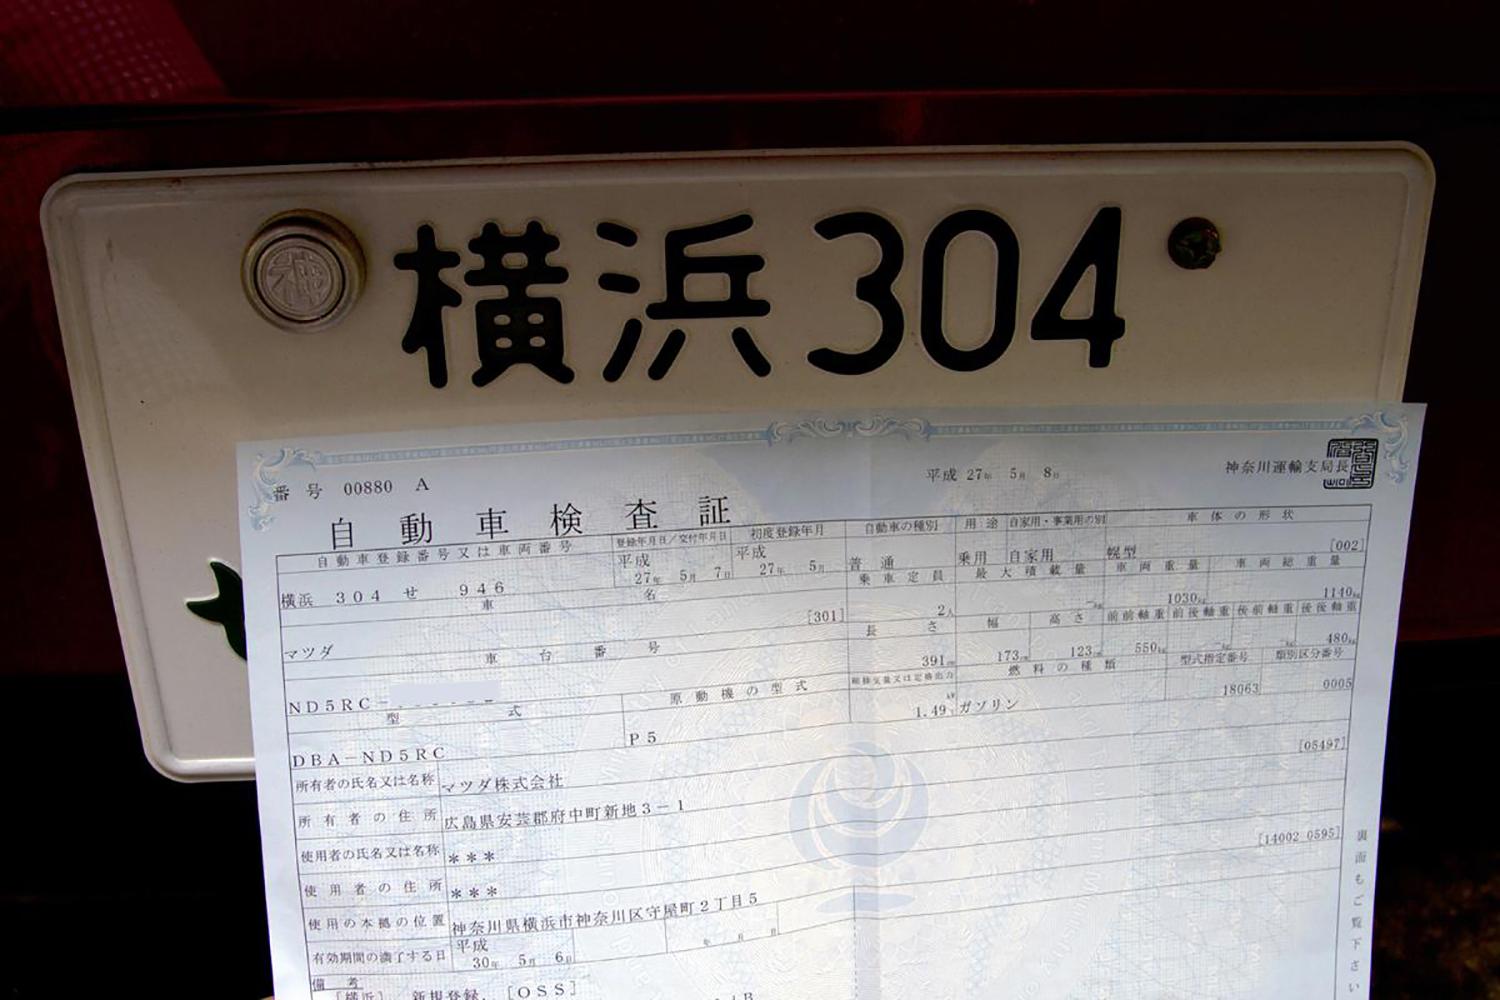 神
横浜 304
番号 00880 A
平成 27年 5月 8日
神奈川運輸支局長
自動車検査証
自動車登録番号又は車両番号 登録年月日/交付年月日 初度登録年月 自動車の種別 用途 自家用・事業用の別 車体の形状
横浜 304 せ 946 平成 27年 5月 7日 平成 27年 5月 普通 乗用 自家用 幌型 [002]
車名 乗車定員 最大積載量 車両重量 車両総重量
マツダ [301] 2人 －kg 1030kg 1140kg
車台番号 長さ 幅 高さ 前前軸重 前後軸重 後前軸重 後後軸重
ND5RC－ 391cm 173cm 123cm 550kg －kg －kg 480kg
型式 原動機の型式 総排気量又は定格出力 燃料の種類 型式指定番号 類別区分番号
DBA－ND5RC P5 1.49 kW ガソリン 18063 0005
所有者の氏名又は名称 マツダ株式会社 [05497]
所有者の住所 広島県安芸郡府中町新地3－1
使用者の氏名又は名称 ＊＊＊ [14002 0595]
使用者の住所 ＊＊＊
使用の本拠の位置 神奈川県横浜市神奈川区守屋町2丁目5
有効期間の満了する日 平成 30年 5月 6日 年 月 日
備考
[横浜] 新規登録, [OSS]
裏面もご覧下さい